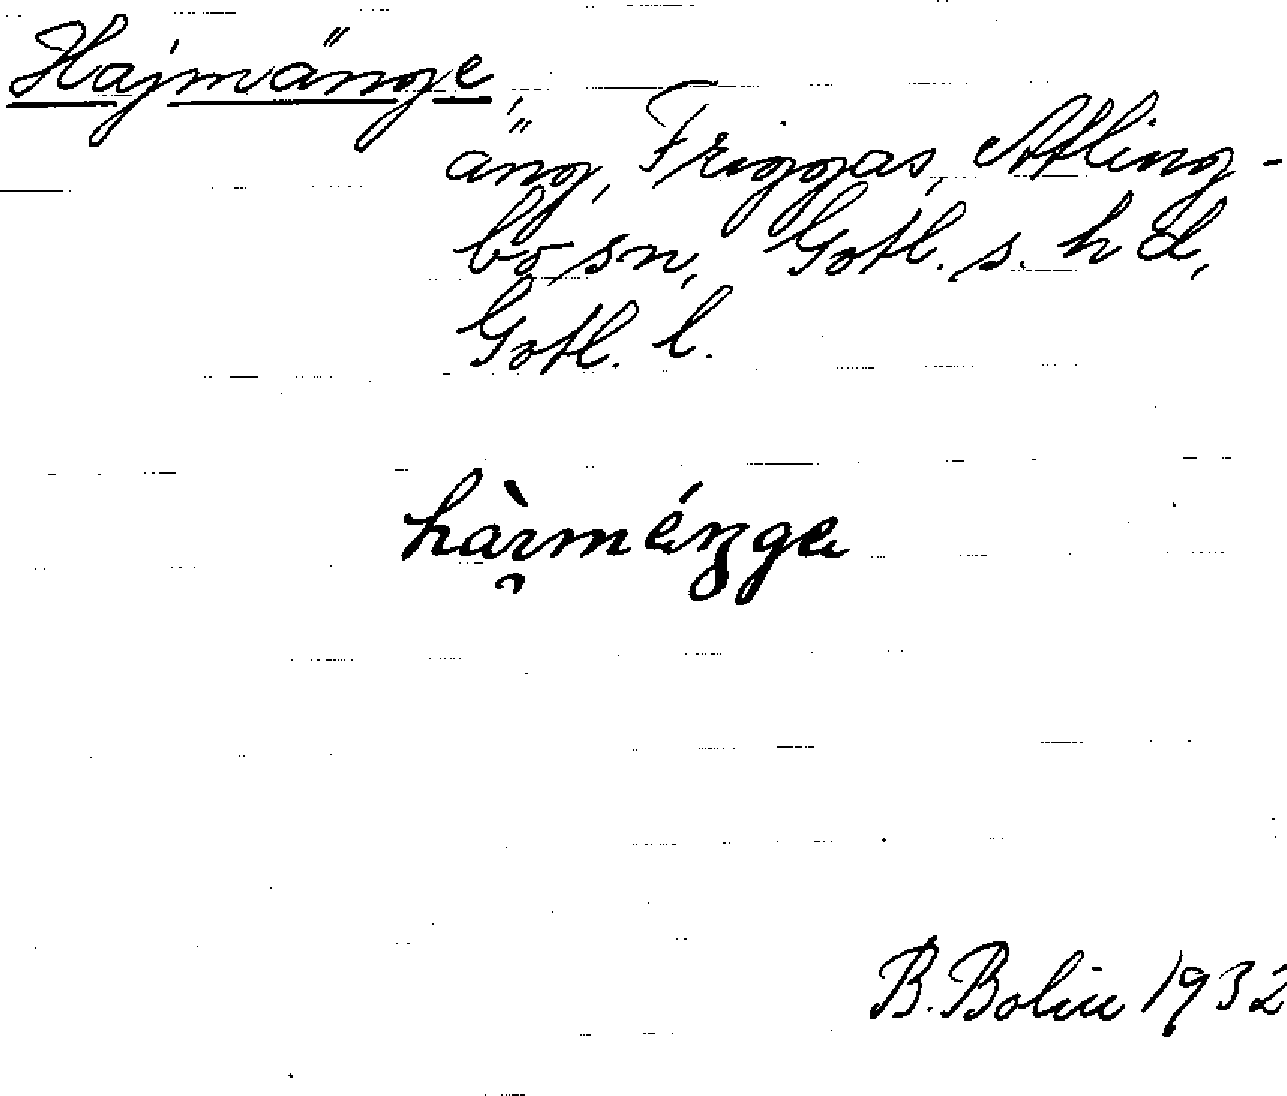 Hajmänge,
äng, Friggas, Atling-
bo sn, Gotl. s. hd,
Gotl. l.
B. Bolin 1932